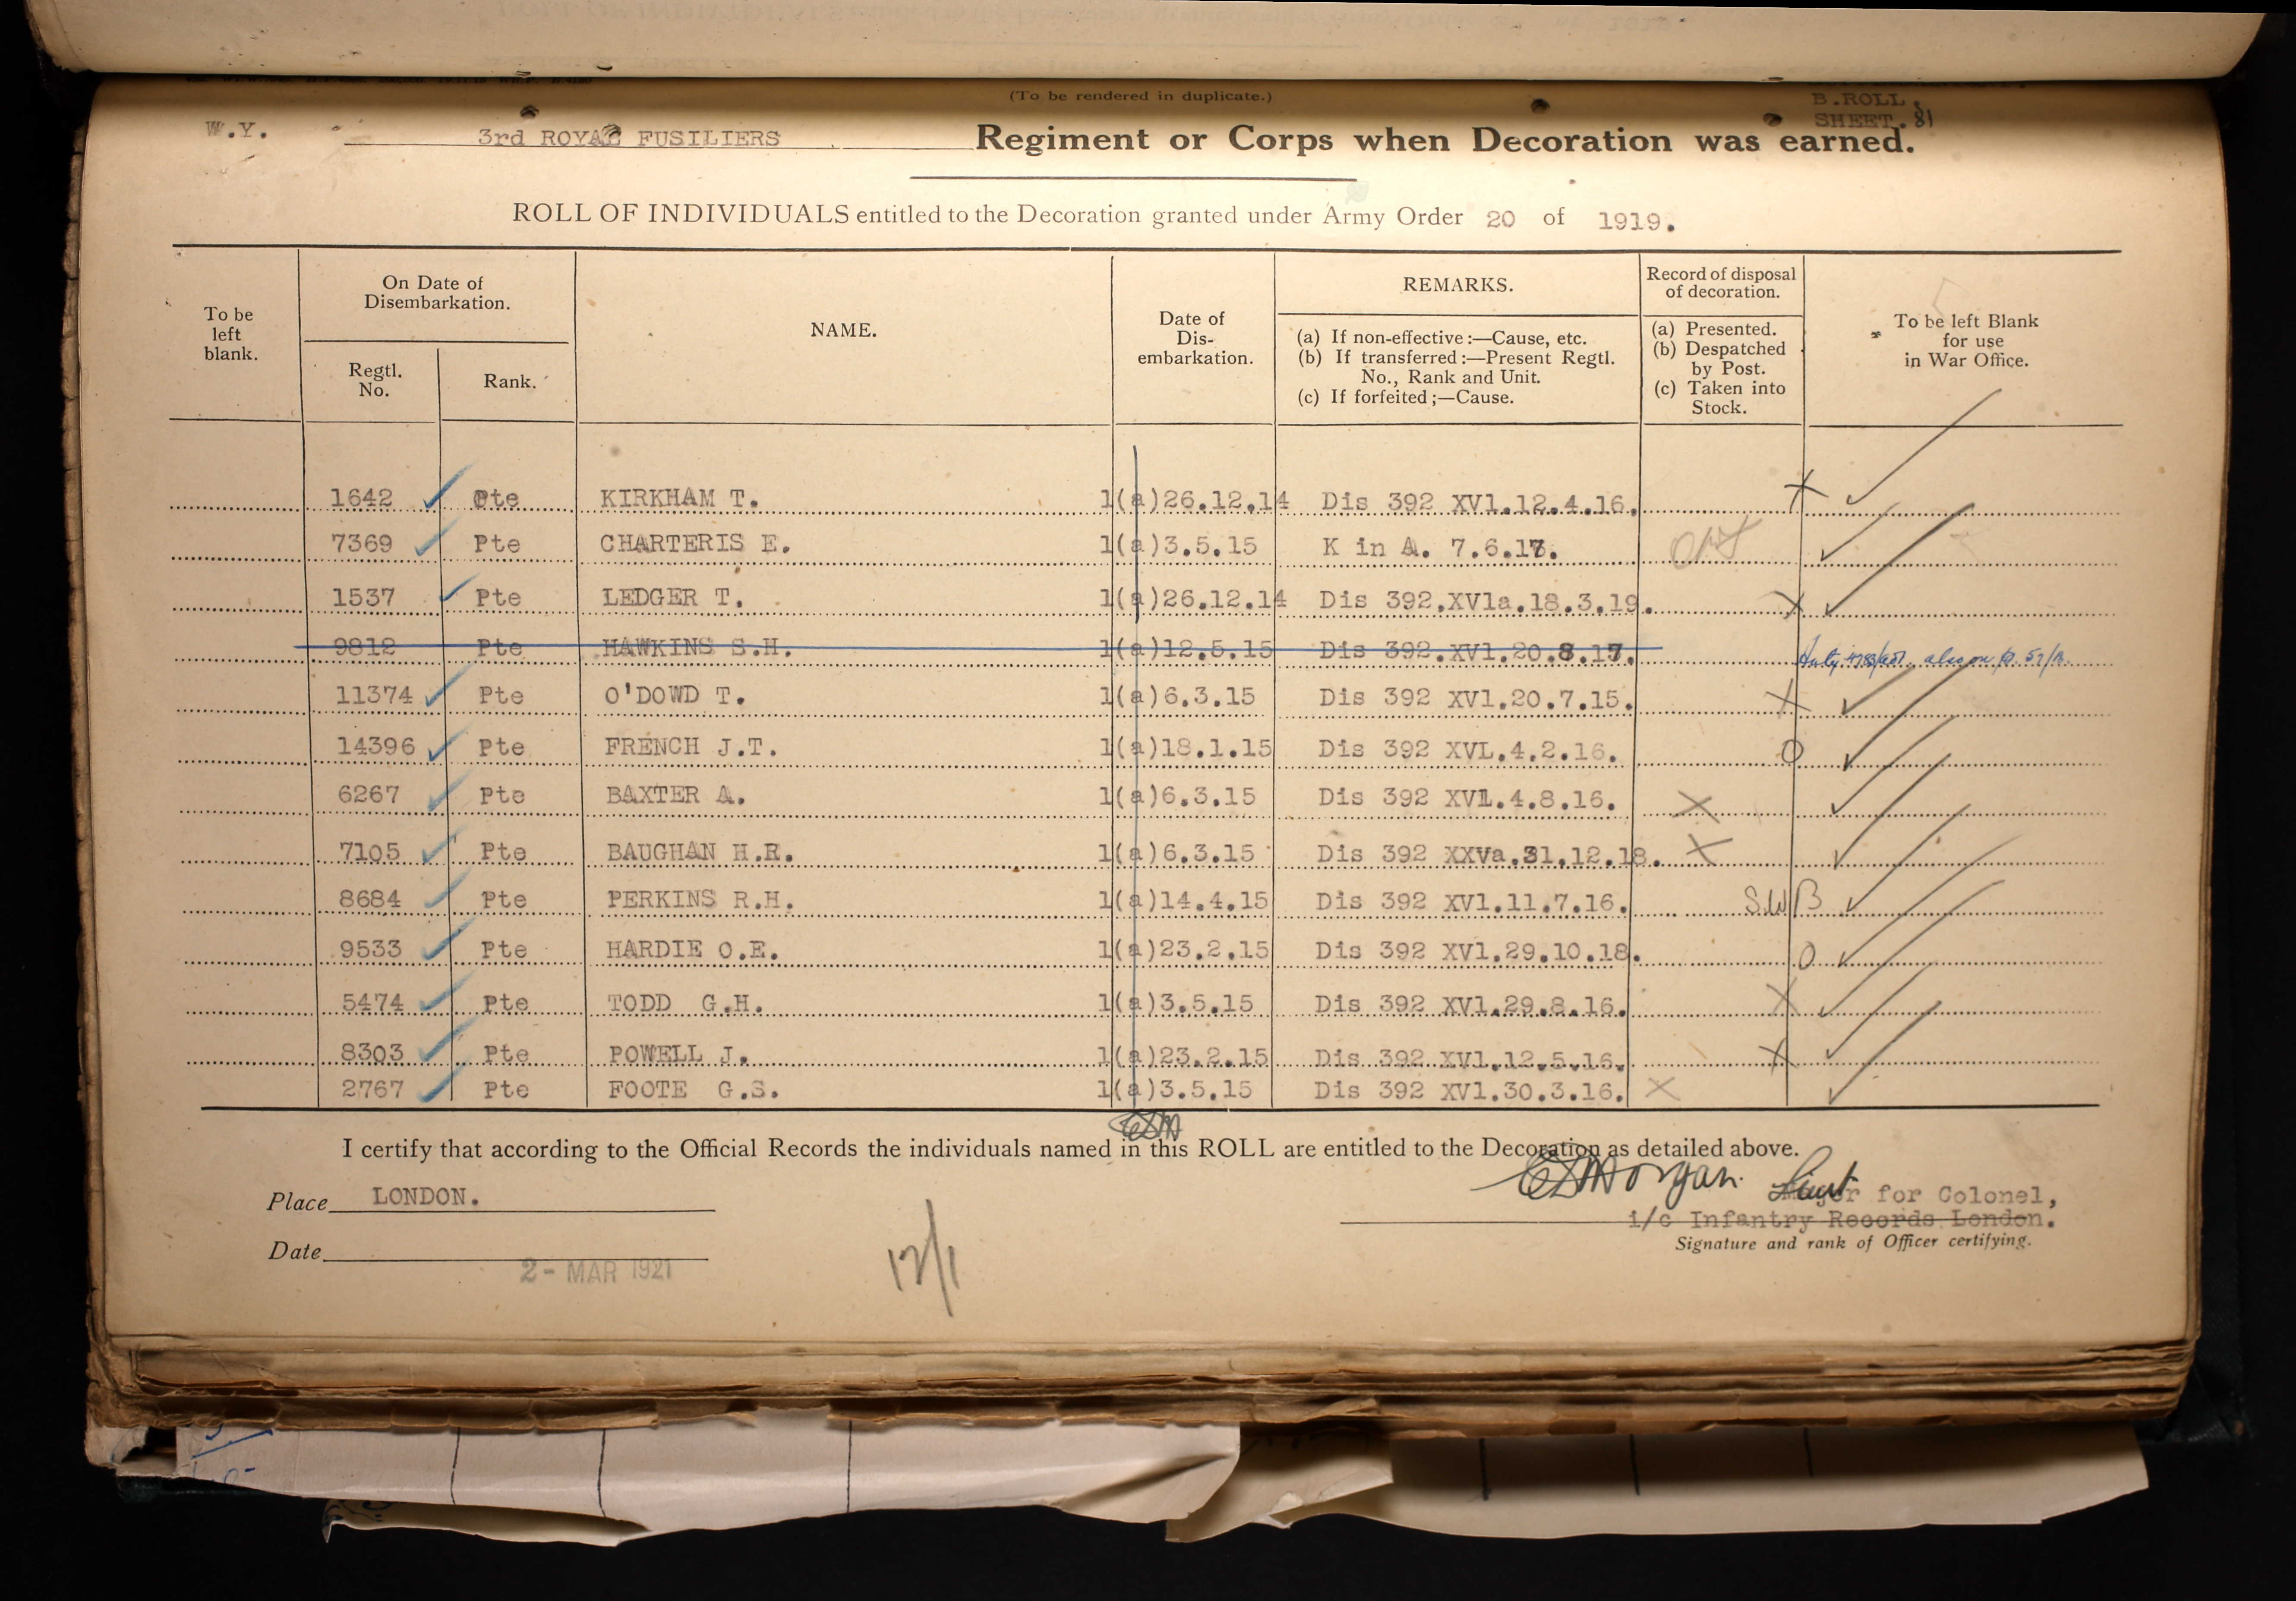 (To be rendered in duplicate.)
B.ROLL.
SHEET. 81
W.Y. 3rd ROYAL FUSILIERS Regiment or Corps when Decoration was earned.
ROLL OF INDIVIDUALS entitled to the Decoration granted under Army Order 20 of 1919.
To be left blank.
On Date of Disembarkation.
Regtl. No.
Rank.
NAME.
Date of Dis-embarkation.
REMARKS.
(a) If non-effective :—Cause, etc.
(b) If transferred :—Present Regtl. No., Rank and Unit.
(c) If forfeited ;—Cause.
Record of disposal of decoration.
(a) Presented.
(b) Despatched by Post.
(c) Taken into Stock.
To be left Blank for use in War Office.
1642 Pte KIRKHAM T. 1(a)26.12.14 Dis 392 XV1.12.4.16. X
7369 Pte CHARTERIS E. 1(a)3.5.15 K in A. 7.6.17.
1537 Pte LEDGER T. 1(a)26.12.14 Dis 392.XV1a.18.3.19. X
9812 Pte HAWKINS S.H. 1(a)12.5.15 Dis 392.XV1.20.8.17. also on
11374 Pte O'DOWD T. 1(a)6.3.15 Dis 392 XV1.20.7.15. X
14396 Pte FRENCH J.T. 1(a)18.1.15 Dis 392 XVL.4.2.16. O
6267 Pte BAXTER A. 1(a)6.3.15 Dis 392 XV1.4.8.16. X
7105 Pte BAUGHAN H.R. 1(a)6.3.15 Dis 392 XXVa.31.12.18. X
8684 Pte PERKINS R.H. 1(a)14.4.15 Dis 392 XV1.11.7.16. S.W B
9533 Pte HARDIE O.E. 1(a)23.2.15 Dis 392 XV1.29.10.18. O
5474 Pte TODD G.H. 1(a)3.5.15 Dis 392 XV1.29.8.16. X
8303 Pte POWELL J. 1(a)23.2.15 Dis 392 XV1.12.5.16. X
2767 Pte FOOTE G.S. 1(a)3.5.15 Dis 392 XV1.30.3.16. X
I certify that according to the Official Records the individuals named in this ROLL are entitled to the Decoration as detailed above.
Morgan Lieut
Place LONDON.
Major for Colonel,
i/c Infantry Records London.
Date 2- MAR 1921
Signature and rank of Officer certifying.
12/1